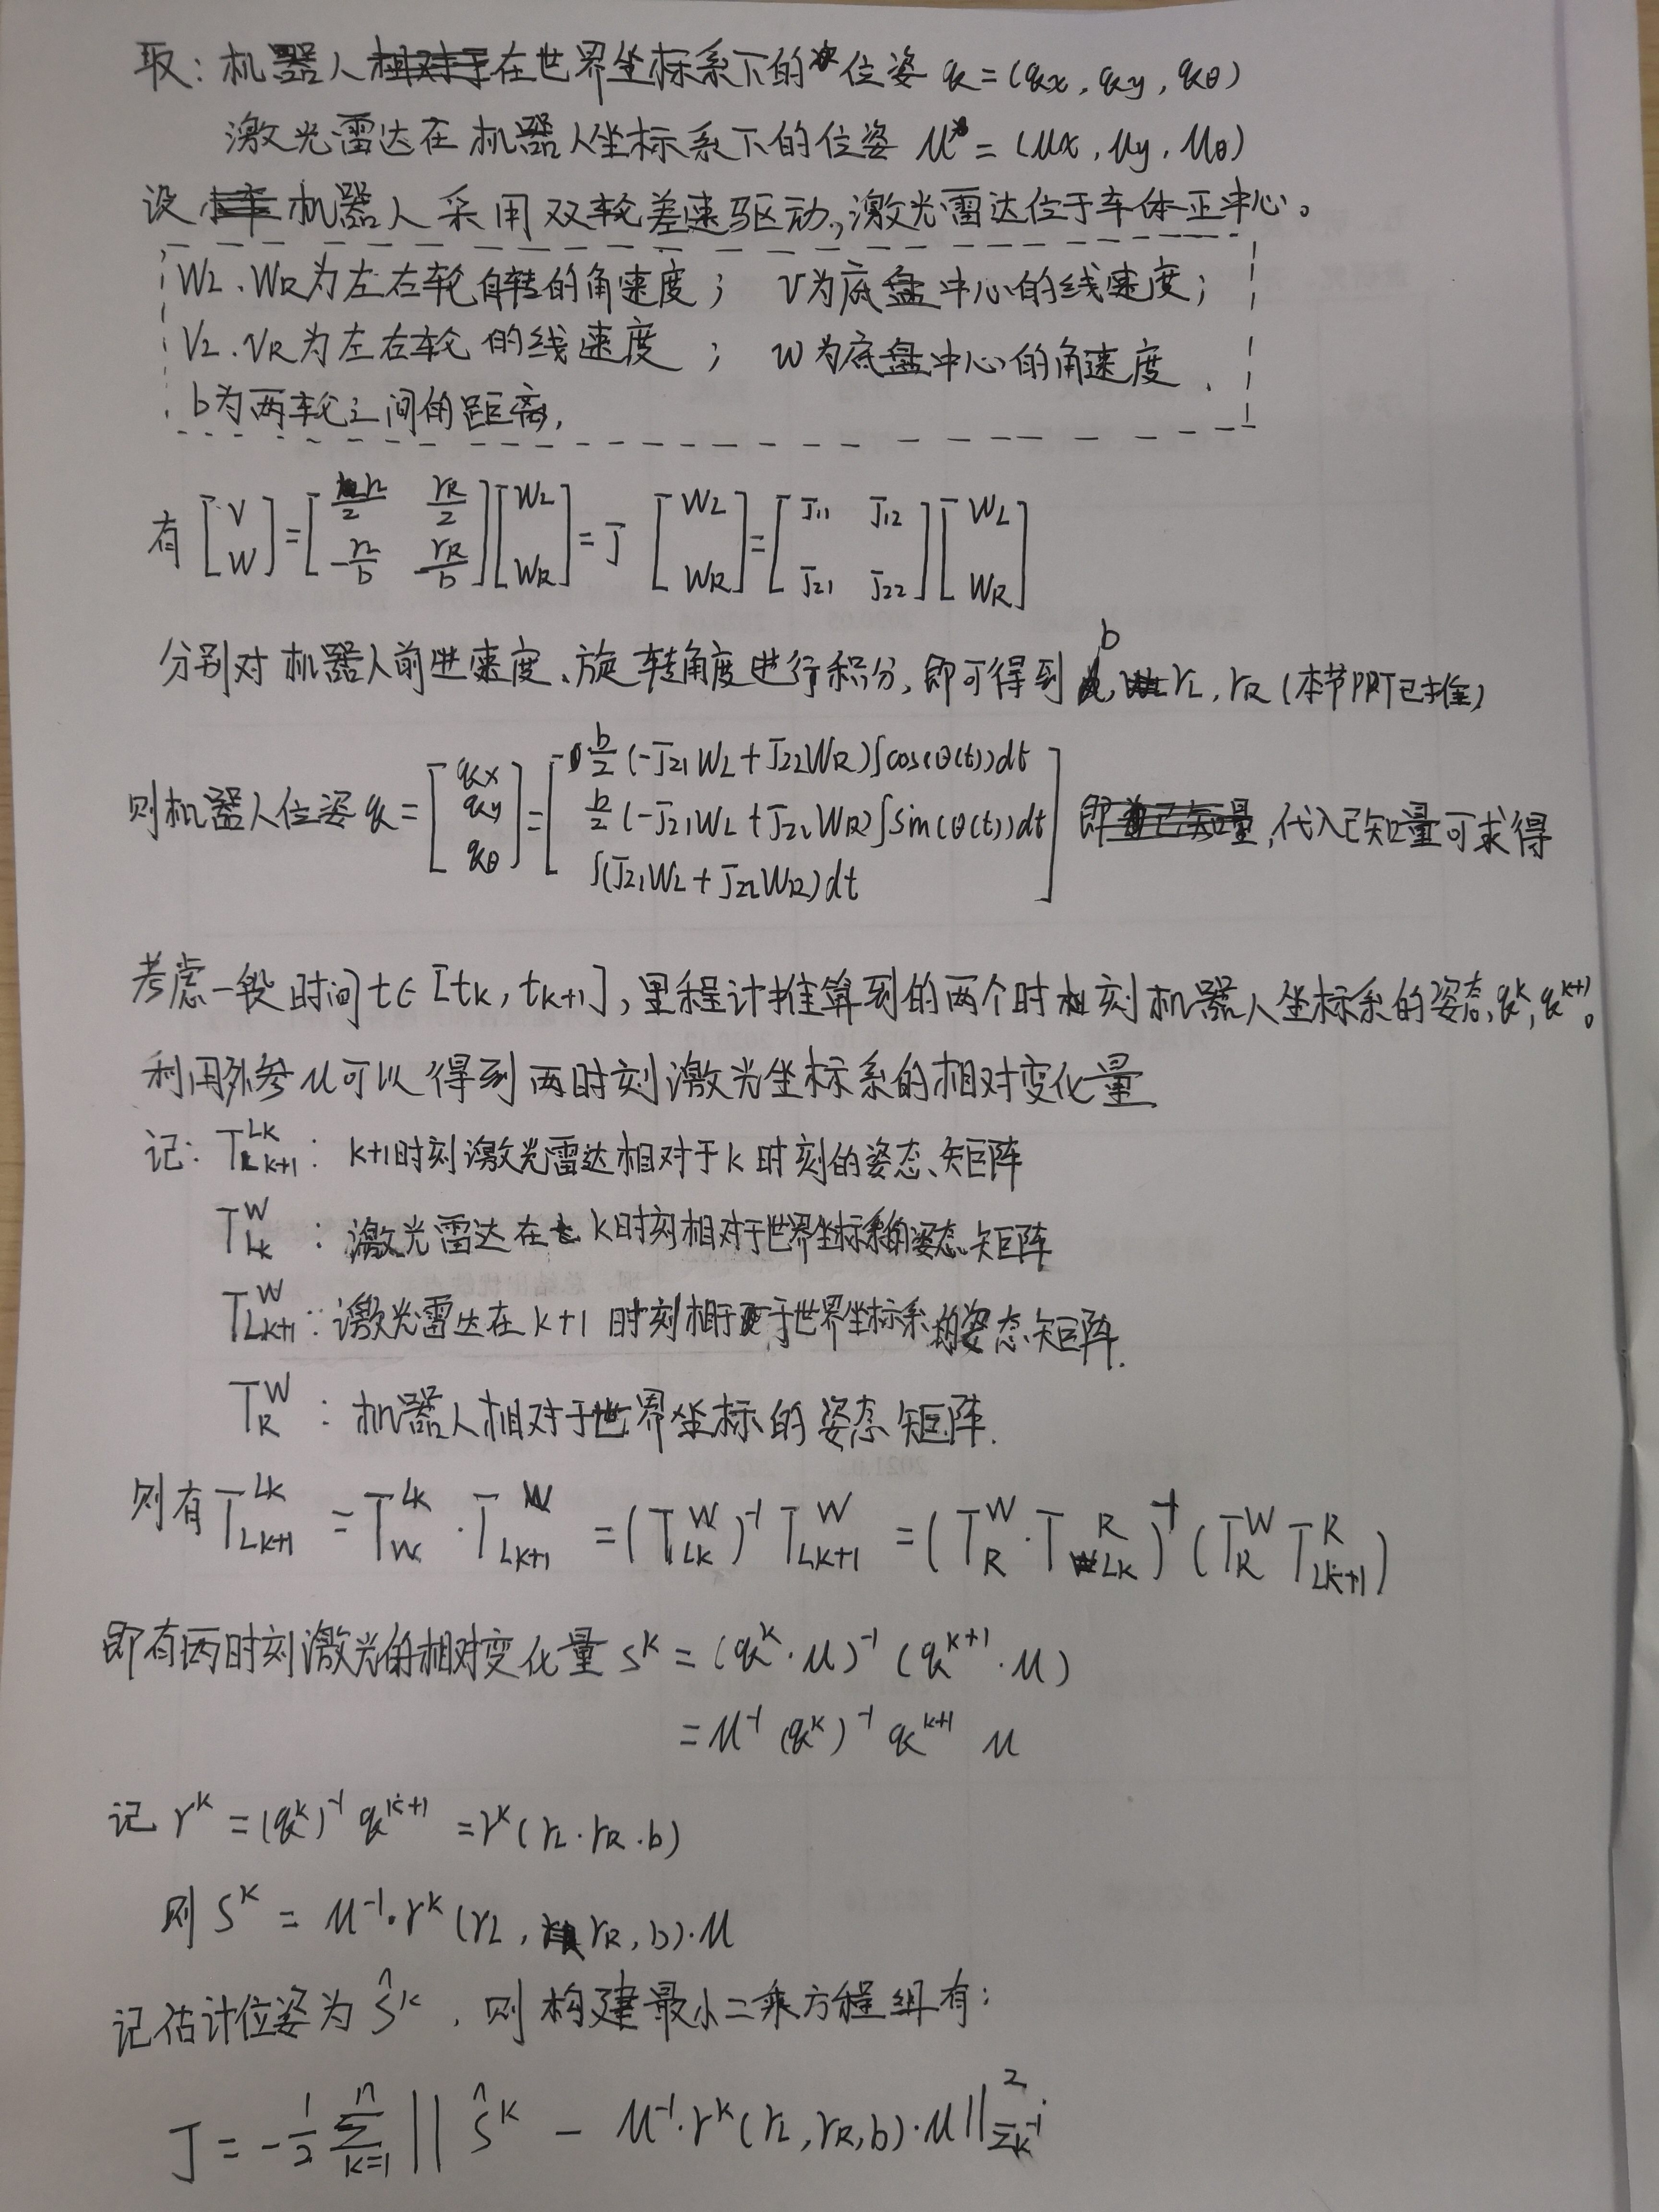 取：机器人在世界坐标系下的位姿 q=(qx, qy, qθ)
激光雷达在机器人坐标系下的位姿 μ=(μx, μy, μθ)
设机器人采用双轮差速驱动，激光雷达位于车体正中心。
WL、WR为左右轮自转的角速度； V为底盘中心的线速度；
VL、VR为左右轮的线速度 ； W为底盘中心的角速度．
b为两轮之间的距离，
有 [V W] = [rL/2 rR/2 -rL/b rR/b] [WL WR] = J [WL WR] = [J11 J12 J21 J22] [WL WR]
分别对机器人前进速度、旋转角度进行积分，即可得到 b rL, rR (本节PPT已推)
则机器人位姿 q = [qx qy qθ] = [b/2 (-J21WL + J22WR)∫cos(θ(t))dt b/2 (-J21WL + J22WR)∫sin(θ(t))dt ∫(J21WL + J22WR)dt] ，代入已知量可求得
考虑一段时间 t∈[tk, tk+1]，里程计推算到的两个时刻机器人坐标系的姿态 q^k, q^k+1。
利用外参μ可以得到两时刻激光坐标系的相对变化量
记： T_Lk+1^Lk ： k+1时刻激光雷达相对于k时刻的姿态矩阵
T_Lk^W ： 激光雷达在k时刻相对于世界坐标系的姿态矩阵
T_Lk+1^W ： 激光雷达在k+1时刻相于于世界坐标系的姿态矩阵．
T_R^W ： 机器人相对于世界坐标的姿态矩阵．
则有 T_Lk+1^Lk = T_W^Lk · T_Lk+1^W = (T_Lk^W)^-1 T_Lk+1^W = (T_R^W · T_Lk^R)^-1 (T_R^W T_Lk+1^R)
即有两时刻激光的相对变化量 s^k = (q^k · μ)^-1 (q^k+1 · μ)
= μ^-1 (q^k)^-1 q^k+1 μ
记 r^k = (q^k)^-1 q^k+1 = r^k(rL · rR · b)
则 s^k = μ^-1 · r^k(rL, rR, b) · μ
记估计位姿为 ŝ^k ，则构建最小二乘方程组有：
J = -1/2 Σ_k=1^n || ŝ^k - μ^-1 · r^k(rL, rR, b) · μ ||^2_Σk^-1